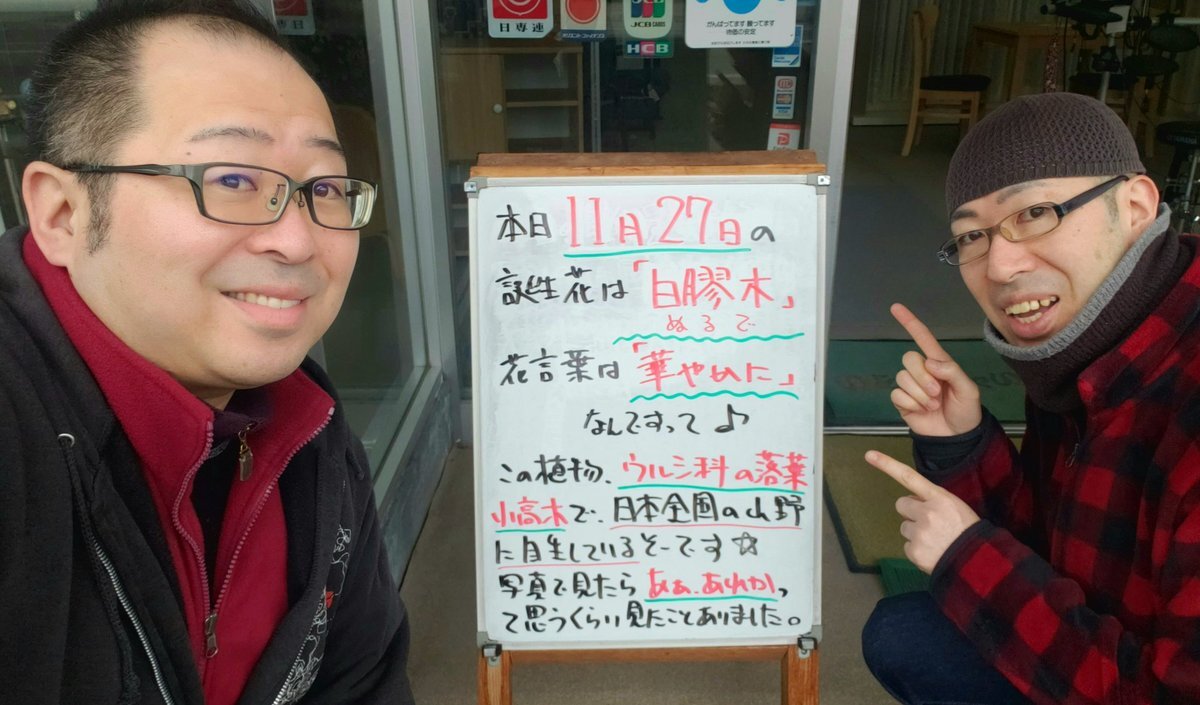 日専連
JCB CARDS
HCB
がんばってます 勝ってます
物価の安定
本日11月27日の
誕生花は「白膠木」
ぬるで
花言葉は「華やいだ」
なんですって♪
この植物、ウルシ科の落葉
小高木で、日本全国の山野
に自生しているそーです☆
写真で見たら あぁ、あれかっ
て思うくらい見たことありました。